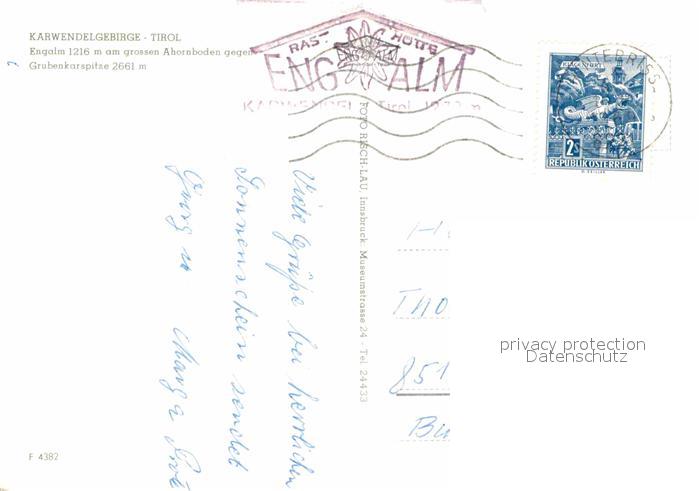 KARWENDELGEBIRGE - TIROL
Engalm 1216 m am grossen Ahornboden gegen
Grubenkarspitze 2661 m
RAST- HÜTTE
ENG ALM
KARWENDEL Tirol
KLAGENFURT
2S
REPUBLIK ÖSTERREICH
FOTO RISCH-LAU, Innsbruck Museumstrasse 24 - Tel 24433
Viele Grüße bei herrlichen
Sonnenschein sendet
Marga
851
Bu
privacy protection
Datenschutz
F 4382